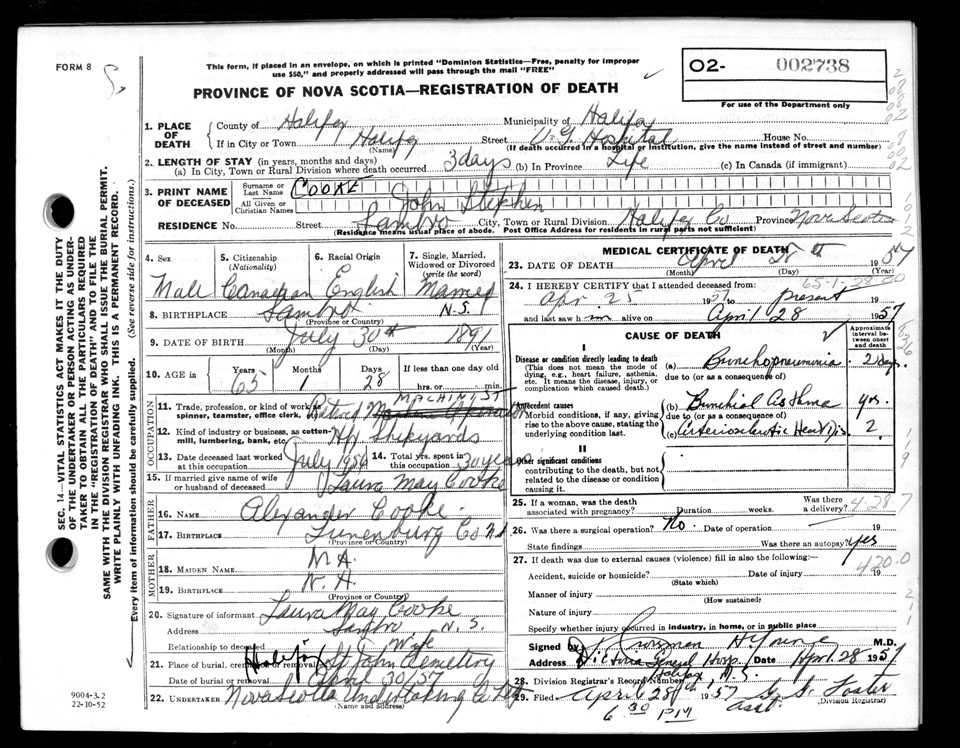 FORM 8
This form, if placed in an envelope, on which is printed "Dominion Statistics—Free, penalty for improper
use $50," and properly addressed will pass through the mail "FREE"
PROVINCE OF NOVA SCOTIA—REGISTRATION OF DEATH
02- 002738
For use of the Department only
1. PLACE OF DEATH
County of Halifax Municipality of Halifax
If in City or Town Halifax Street V. G. Hospital House No.
(Name) (If death occurred in a hospital or institution, give the name instead of street and number)
2. LENGTH OF STAY (in years, months and days)
(a) In City, Town or Rural Division where death occurred 3 days (b) In Province Life (c) In Canada (if immigrant)
3. PRINT NAME OF DECEASED
Surname or Last Name COOKE
All Given or Christian Names John Stephen
RESIDENCE No. Street Sambro City, Town or Rural Division Halifax Co Province Nova Scotia
(Residence means usual place of abode. Post Office Address for residents in rural parts not sufficient)
4. Sex 5. Citizenship (Nationality) 6. Racial Origin 7. Single, Married, Widowed or Divorced (write the word)
Male Canadian English Married
8. BIRTHPLACE Sambro N.S.
(Province or Country)
9. DATE OF BIRTH July 30th 1891
(Month) (Day) (Year)
10. AGE in Years Months Days If less than one day old
65 1 28 hrs. or min.
OCCUPATION
MACHINIST
11. Trade, profession, or kind of work as spinner, teamster, office clerk, Retired
12. Kind of industry or business, as cotton-mill, lumbering, bank, etc. Hfx Shipyards
13. Date deceased last worked at this occupation July 1956 14. Total yrs. spent in this occupation 30 years
15. If married give name of wife or husband of deceased Laura May Cooke
FATHER
16. NAME Alexander Cooke
17. BIRTHPLACE Lunenburg Co N.S
(Province or Country)
MOTHER
18. MAIDEN NAME N.A.
19. BIRTHPLACE N.A.
(Province or Country)
20. Signature of informant Laura May Cooke
Address Sambro N.S.
Relationship to deceased Wife
21. Place of burial, cremation or removal Halifax St John Cemetery
Date of burial or removal 30/57
22. UNDERTAKER Nova Scotia Undertaking Co
(Name and address)
MEDICAL CERTIFICATE OF DEATH
23. DATE OF DEATH April 28th 1957
(Month) (Day) (Year)
24. I HEREBY CERTIFY that I attended deceased from:
Apr. 25 1957 to present 19
and last saw h im alive on April 28 1957
CAUSE OF DEATH
Approximate interval between onset and death
I
Disease or condition directly leading to death (This does not mean the mode of dying, e.g., heart failure, asthenia, etc. It means the disease, injury, or complication which caused death.)
(a) Bronchopneumonia 2 days
due to (or as a consequence of)
Antecedent causes
Morbid conditions, if any, giving rise to the above cause, stating the underlying condition last.
(b) Bronchial Asthma yrs.
due to (or as a consequence of)
(c) Arteriosclerotic Heart Dis. 2
II
Other significant conditions contributing to the death, but not related to the disease or condition causing it.
25. If a woman, was the death associated with pregnancy? Duration weeks. Was there a delivery?
26. Was there a surgical operation? No Date of operation 19
State findings Was there an autopsy? yes
27. If death was due to external causes (violence) fill in also the following:
Accident, suicide or homicide? Date of injury 19
420.0
(State which)
Manner of injury
(How sustained)
Nature of injury
Specify whether injury occurred in industry, in home, or in public place
Signed by M.D.
Address Victoria General Hosp. Date April 28 1957
Halifax, N.S.
28. Division Registrar's Record Number
29. Filed April 28th 1957 G. G. Foster
6 30 PM asst. (Division Registrar)
SEC. 14—VITAL STATISTICS ACT MAKES IT THE DUTY
OF THE UNDERTAKER OR PERSON ACTING AS UNDER-
TAKER TO OBTAIN ALL THE PARTICULARS REQUIRED
IN THE "REGISTRATION OF DEATH" AND TO FILE THE
SAME WITH THE DIVISION REGISTRAR WHO SHALL ISSUE THE BURIAL PERMIT.
WRITE PLAINLY WITH UNFADING INK. THIS IS A PERMANENT RECORD.
Every item of information should be carefully supplied. (See reverse side for instructions.)
9004-3.2
22-10-52